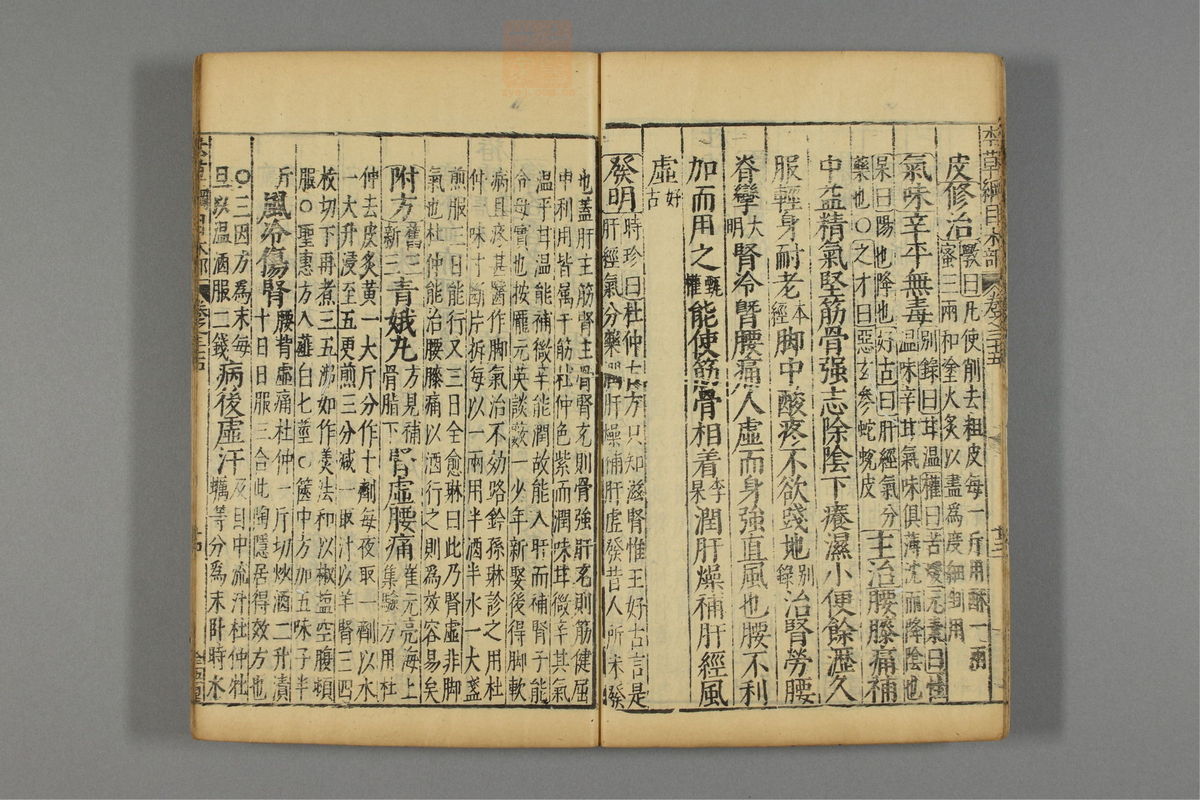 本草綱目木部 卷之三十五 廿三
皮修治斅曰凡使削去粗皮每一斤用酥一兩
蜜三兩和塗火炙以盡為度細剉用
氣味辛平無毒別錄曰甘温權曰苦暖元素曰性
温味辛甘氣味俱薄沈而降陰也
杲曰陽也降也好古曰肝經氣分
藥也〇之才曰惡玄參蛇蛻皮
主治腰膝痛補
中益精氣堅筋骨强志除陰下癢濕小便餘瀝久
服輕身耐老本經脚中酸疼不欲踐地别錄治腎勞腰
脊攣大明腎冷䐴腰痛人虛而身強直風也腰不利
加而用之甄權能使筋骨相着李杲潤肝燥補肝經風
虛好古
發明時珍曰杜仲古方只知滋腎惟王好古言是
肝經氣分藥潤肝燥補肝虛發昔人所未發
也蓋肝主筋腎主骨腎充則骨強肝充則筋健屈
伸利用皆屬于筋杜仲色紫而潤味甘微辛其氣
温平甘温能補微辛能潤故能入肝而補腎子能
令母實也按龐元英談藪一少年新娶後得脚軟
病且疼甚醫作脚氣治不効路鈐孫琳診之用杜
仲一味寸斷片拆每以一兩用半酒半水一大盞
煎服三日能行又三日全愈琳曰此乃腎虛非脚
氣也杜仲能治腰膝痛以酒行之則為效容易矣
附方舊三新三青娥丸方見補骨脂下腎虛腰痛崔元亮海上集驗方用杜
仲去皮炙黄一大斤分作十劑每夜取一劑以水
一大升浸至五更煎三分減一取汁以羊腎三四
枚切下再煮三五沸如作羮法和以椒鹽空腹頓
服〇聖惠方入薤白七莖〇篋中方加五味子半
斤風冷傷腎腰背虛痛杜仲一斤切炒酒二升漬
十日日服三合此陶隱居得效方也
〇三因方為末每旦以温酒服二錢病後虛汗及目中流汁杜仲牡
蠣等分為末卧時水
本草綱目木部 卷之三十五 廿四